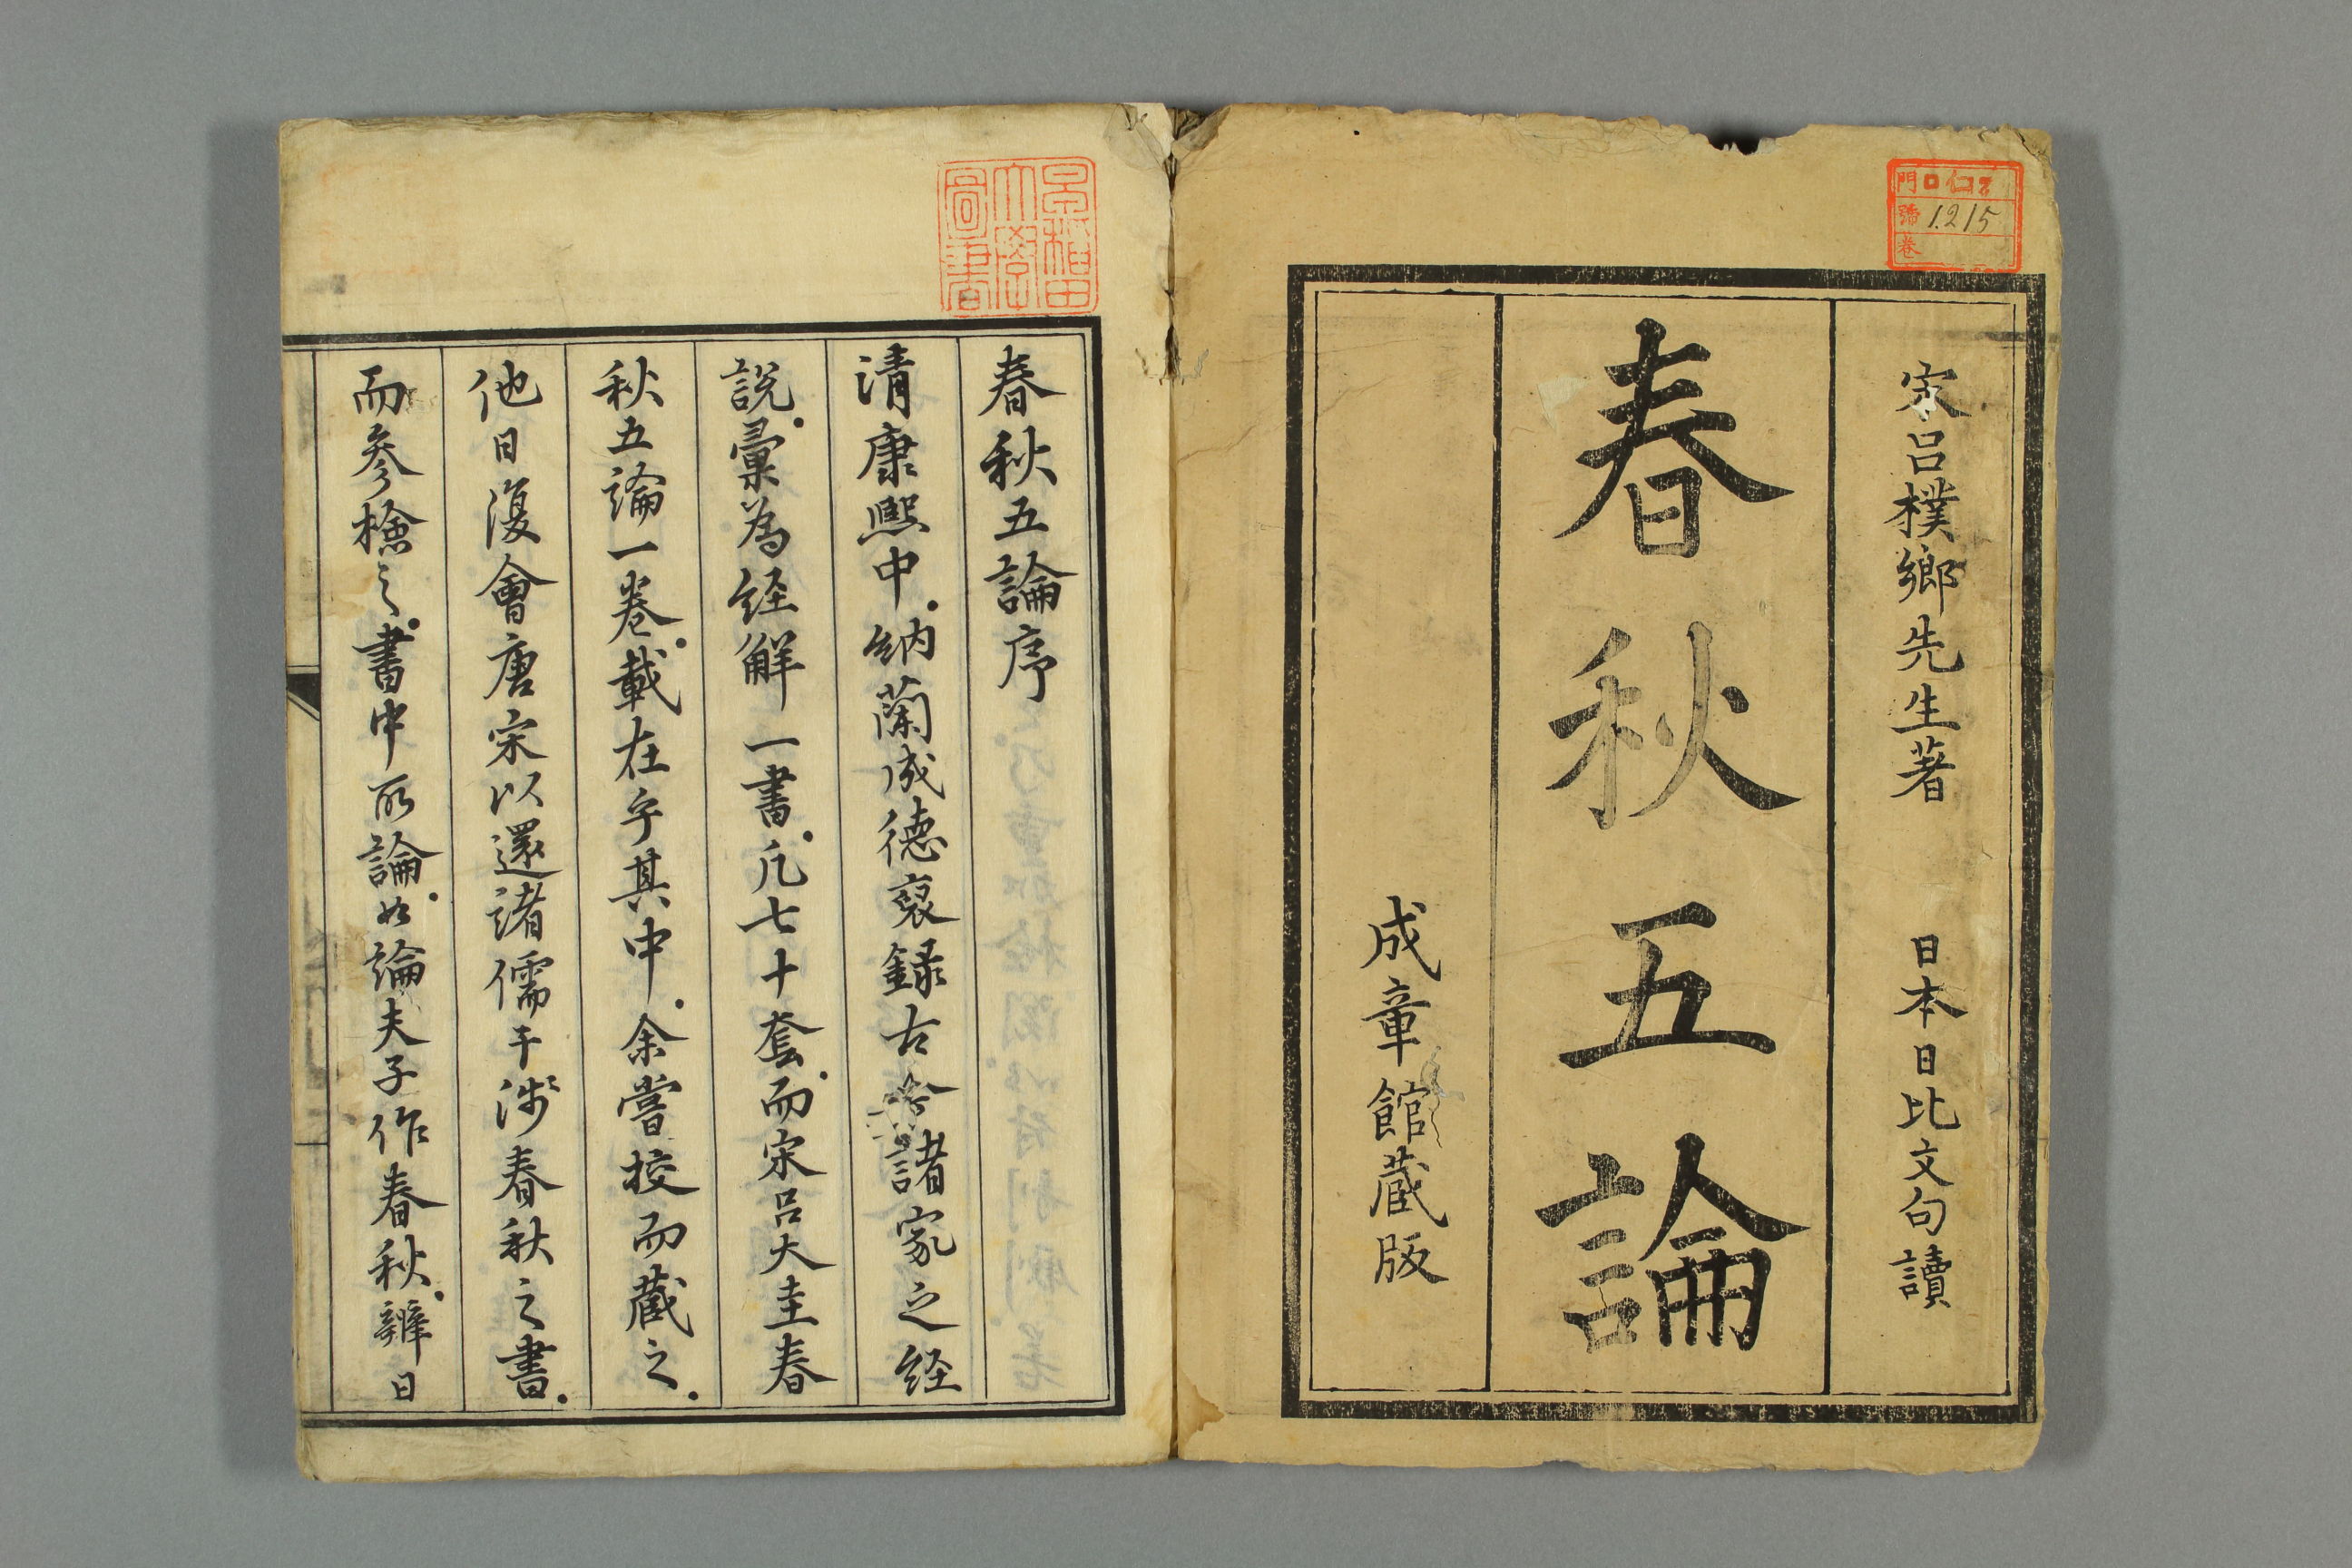 宋呂樸鄉先生著 日本日比文句讀
春秋五論
成章館藏版
門 口仁2
號 1215
卷
早稲田
大學
圖書
春秋五論序
清康熙中納蘭成德裒錄古今諸家之経
說彙為経解一書凡七十套而宋呂大圭春
秋五論一卷載在乎其中余嘗挍而藏之
他日復會唐宋以還諸儒干涉春秋之書
而參檢之書中所論如論夫子作春秋辨日